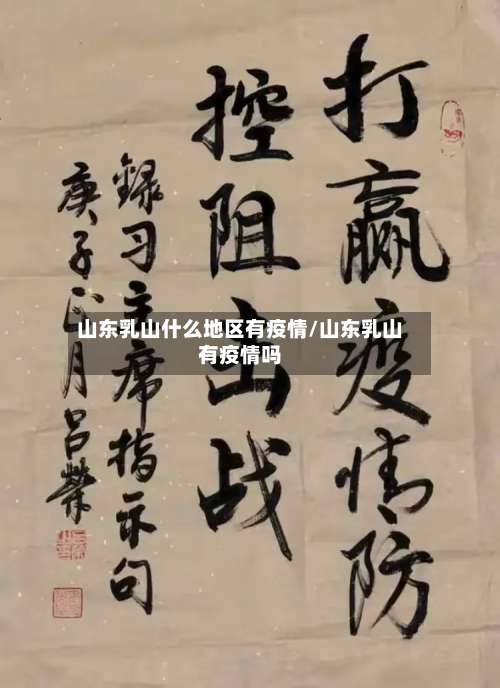 打赢疫情防
控阻击战
録习主席指示句
庚子正月吕榮
山东乳山什么地区有疫情/山东乳山
有疫情吗